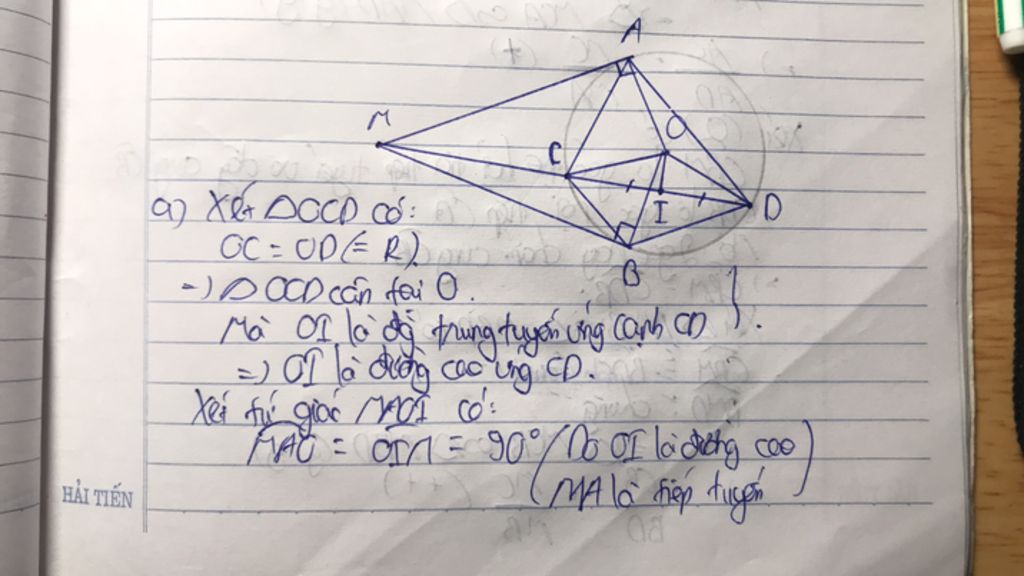 A
M
C
O
I
D
B
a) Xét ΔOCD có:
OC = OD (= R)
=) ΔOCD cân tại O.
Mà OI là đg trung tuyến ứng cạnh CD
=) OI là đường cao ứng CD.
Xét tứ giác MAOI có:
MAO = OIM = 90° (Do OI là đường cao
MA là tiếp tuyến)
HẢI TIẾN